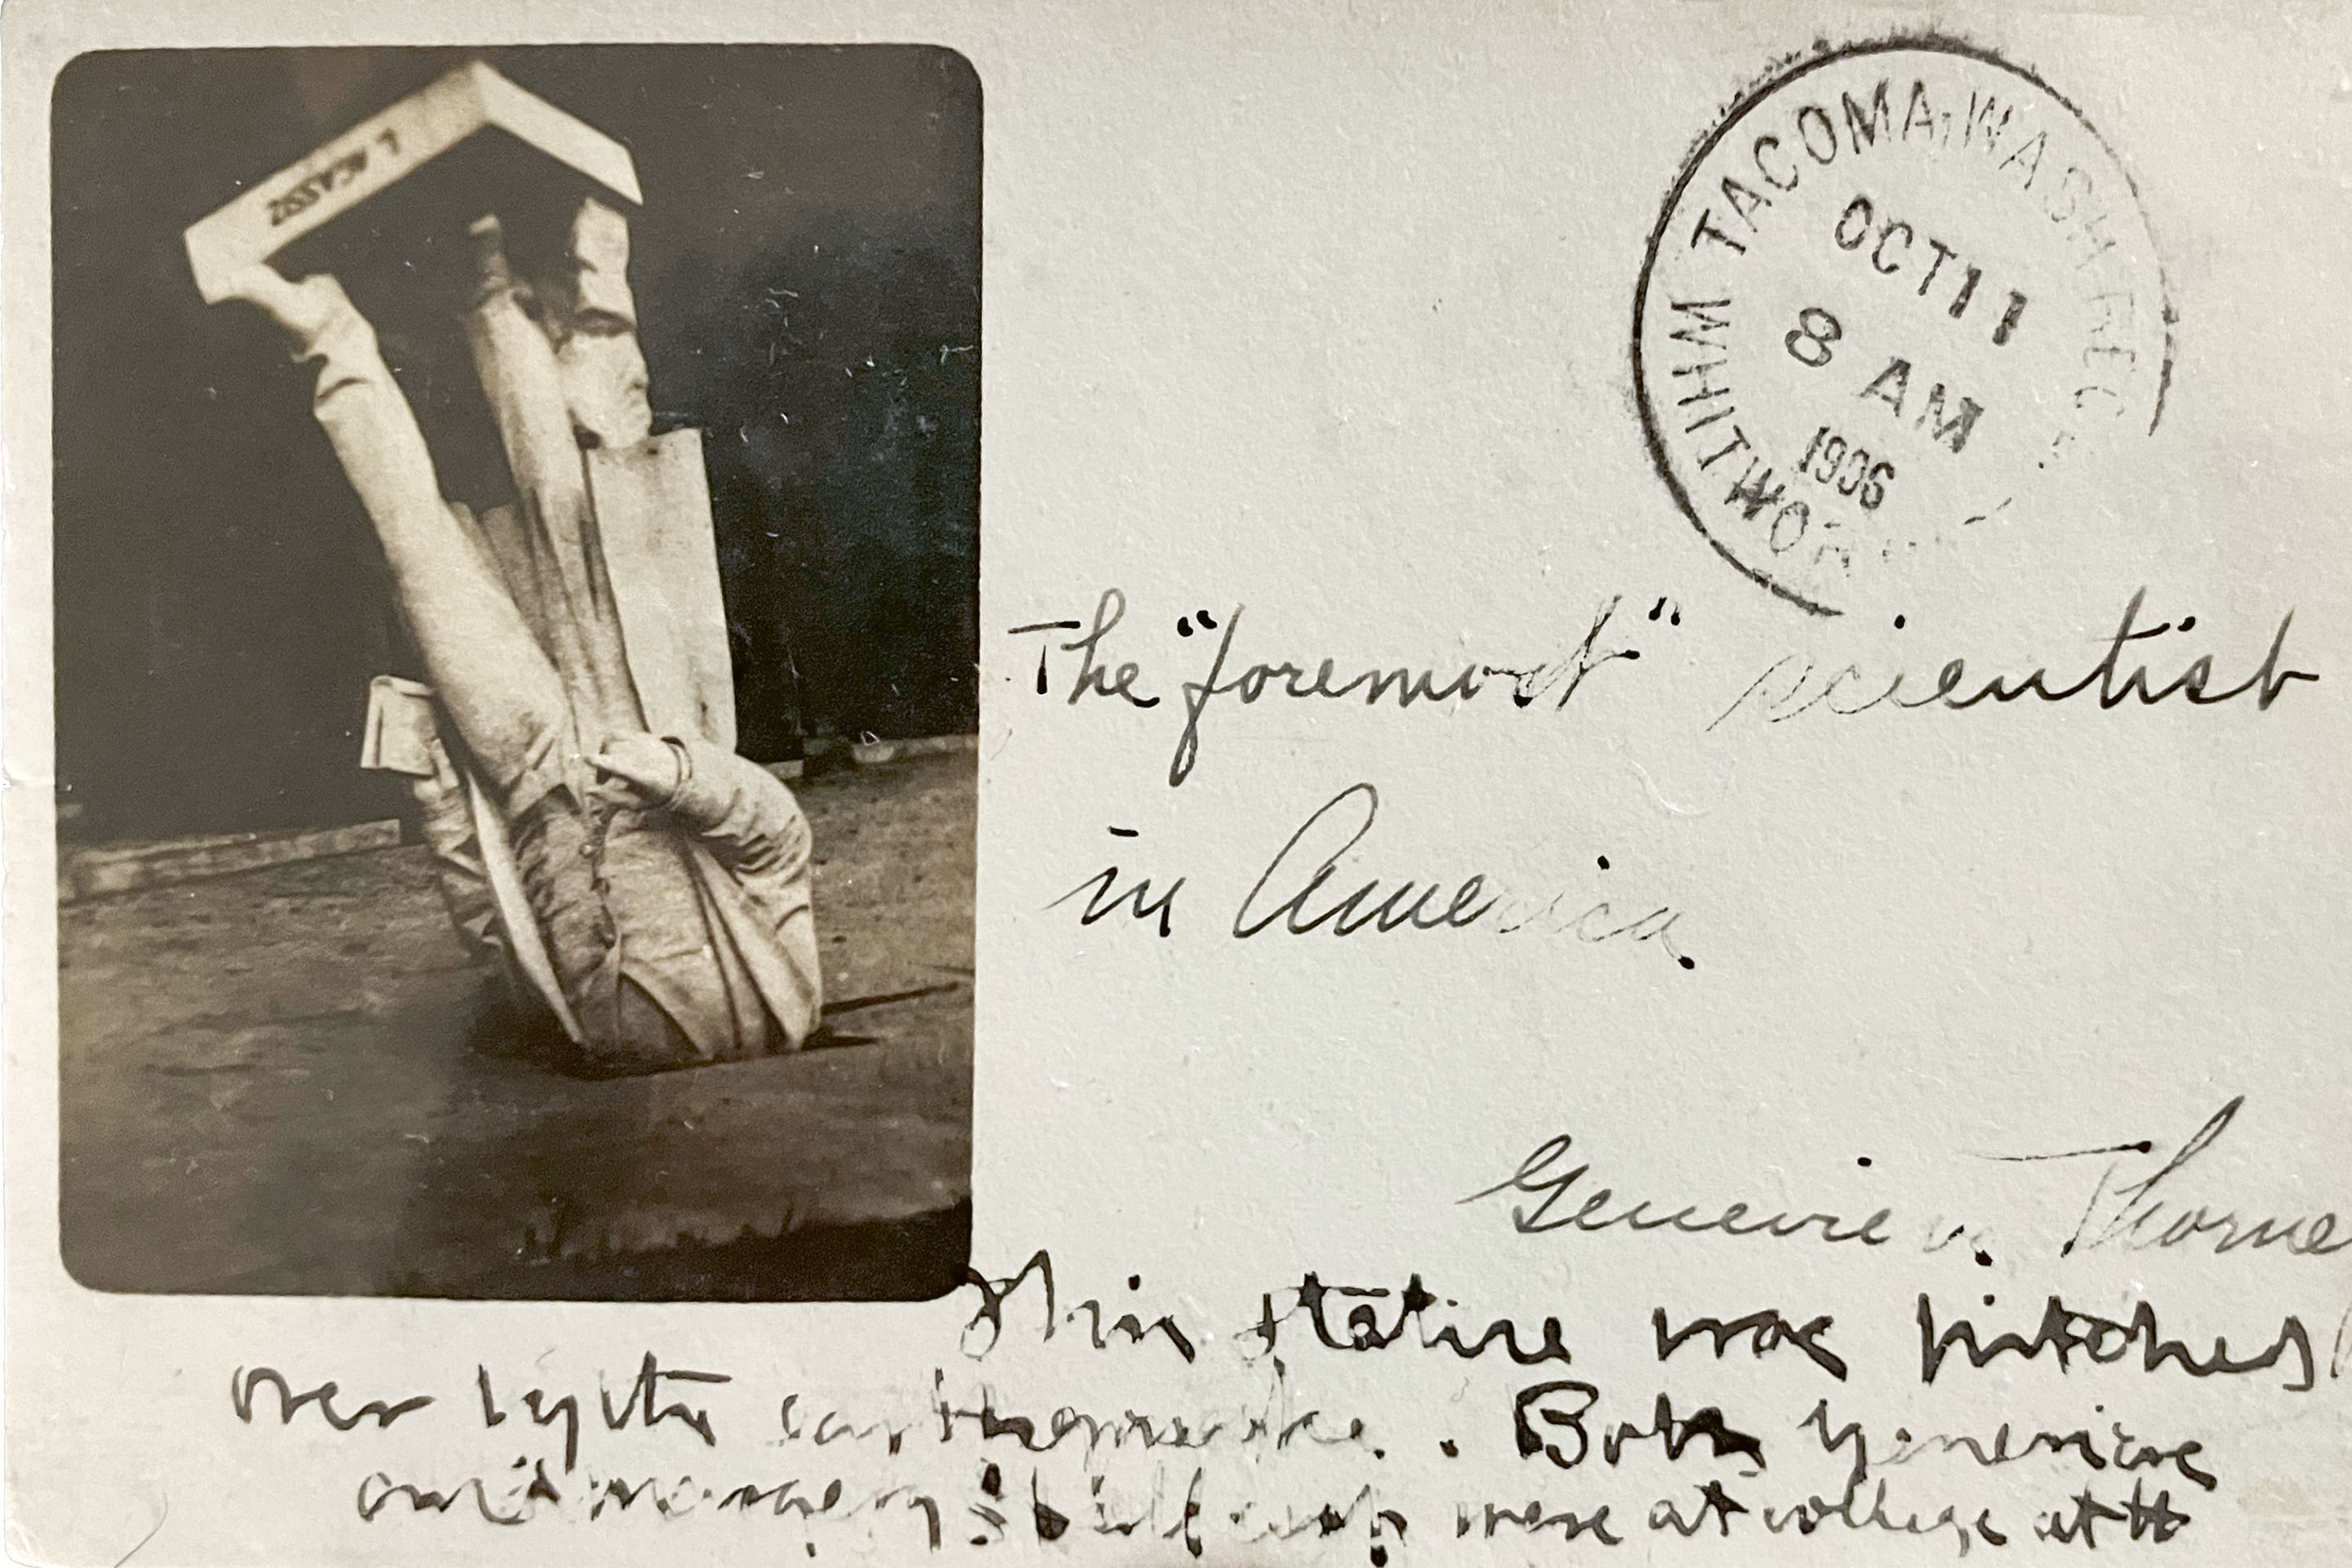 L. AGASSIZ
TACOMA, WASH. REC'D.
OCT 11
8 AM
1906
WHITWOR
The "foremost" scientist
in America.
Genevieve Thorne
This statue was pitched
over by the earthquake. Both Genevieve
and were at college at